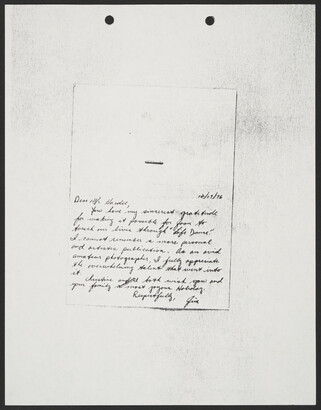 12/17/76
Dear Mr.
You have my sincerest gratitude
for making it possible for you to
touch our lives through "Life Dance."
I cannot remember a more personal
and artistic publication. As an avid
amateur photographer, I fully appreciate
the overwhelming talent that went into
it.
Christine and I both wish you and
your family a most joyous Holiday.
Respectfully,
Jim